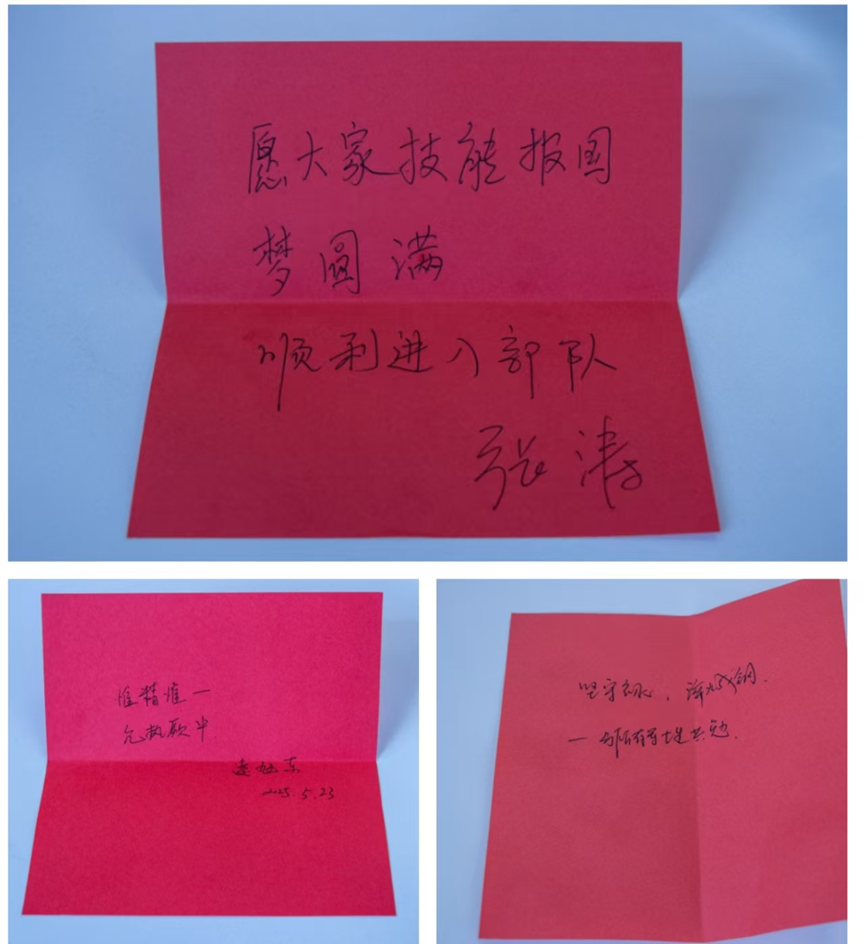 愿大家技能报国
梦圆满
顺利进入部队
张涛
惟精惟一
允执厥中
东
2025.5.23
坚守初心，淬火成钢.
一与所有学士共勉.